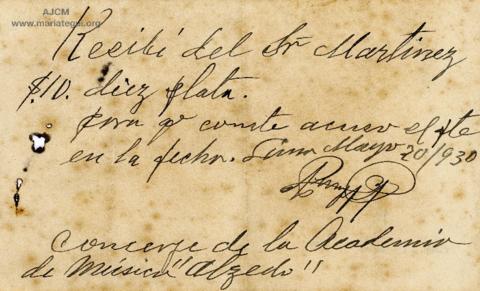 AJCM
www.mariategui.org
Recibí del Sr Martinez
$10. diez plata.
para qe conste acuso el pte
en la fecha. Lima Mayo 20/930
Concerje de la Academia
de Música "Alzedo"